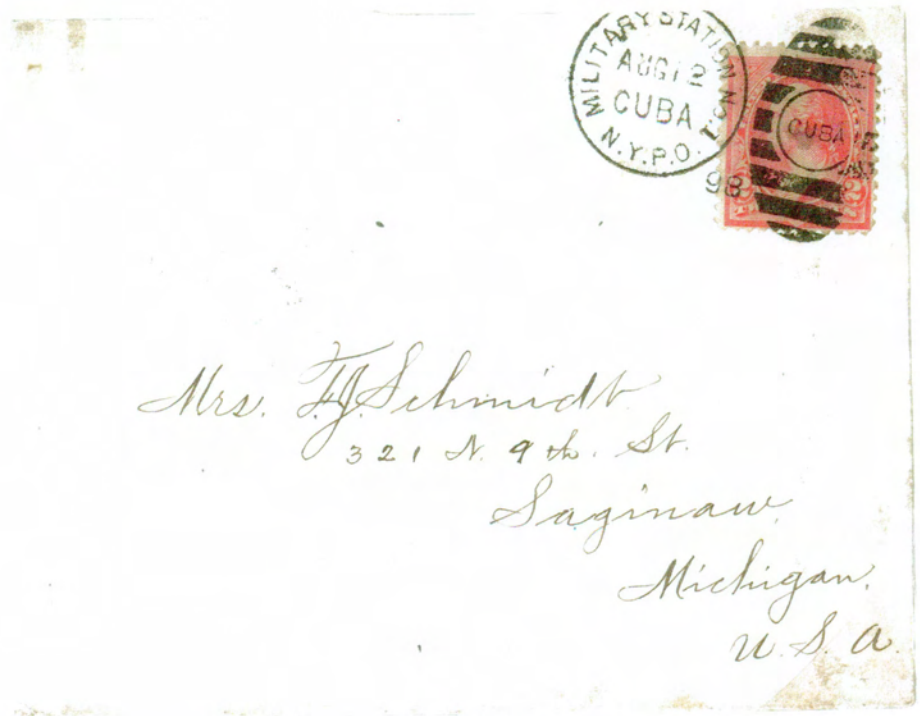 MILITARY STATION No. 1
AUG 12
CUBA
N.Y.P.O.
98
CUBA
2 2
Mrs. F. J. Schmidt
321 N. 9th. St.
Saginaw
Michigan.
U. S. A.